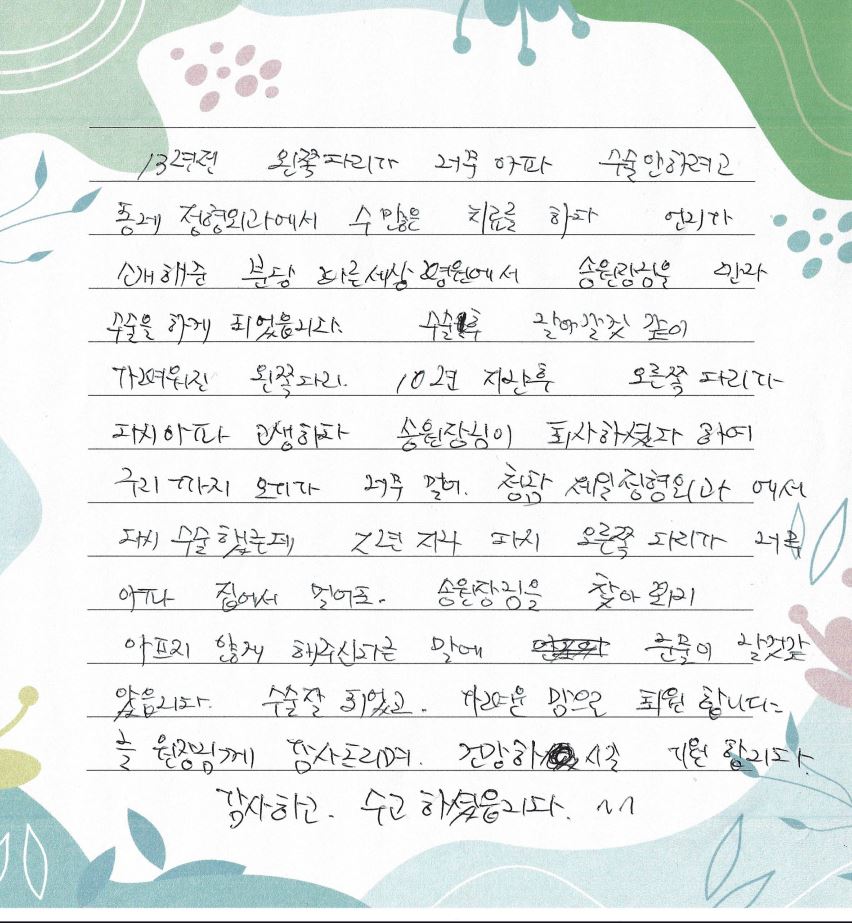 13년전 왼쪽다리가 너무 아파 수술안하려고
동네 정형외과에서 수많은 치료를 하다 언니가
소개해준 분당 바른세상병원에서 송원장님을 만나
수술을 하게 되었읍니다. 수술후 날아갈것 같이
가벼워진 왼쪽다리. 10년 지난후 오른쪽 다리가
다시아파 고생하다 송원장님이 퇴사하셨다 하여
구리까지 오기가 너무 멀어. 청담 세일정형외과에서
다시 수술했는데 2년 지나 다시 오른쪽 다리가 너무
아파 집에서 멀어도. 송원장님을 찾아 뵈니
아프지 않게 해주신다는 말에 눈물이 날것같
았읍니다. 수술잘 되었고. 가벼운 맘으로 퇴원 합니다.
늘 원장님께 감사드리며. 건강하시길 기원 합니다.
감사하고. 수고 하셨읍니다. ^^